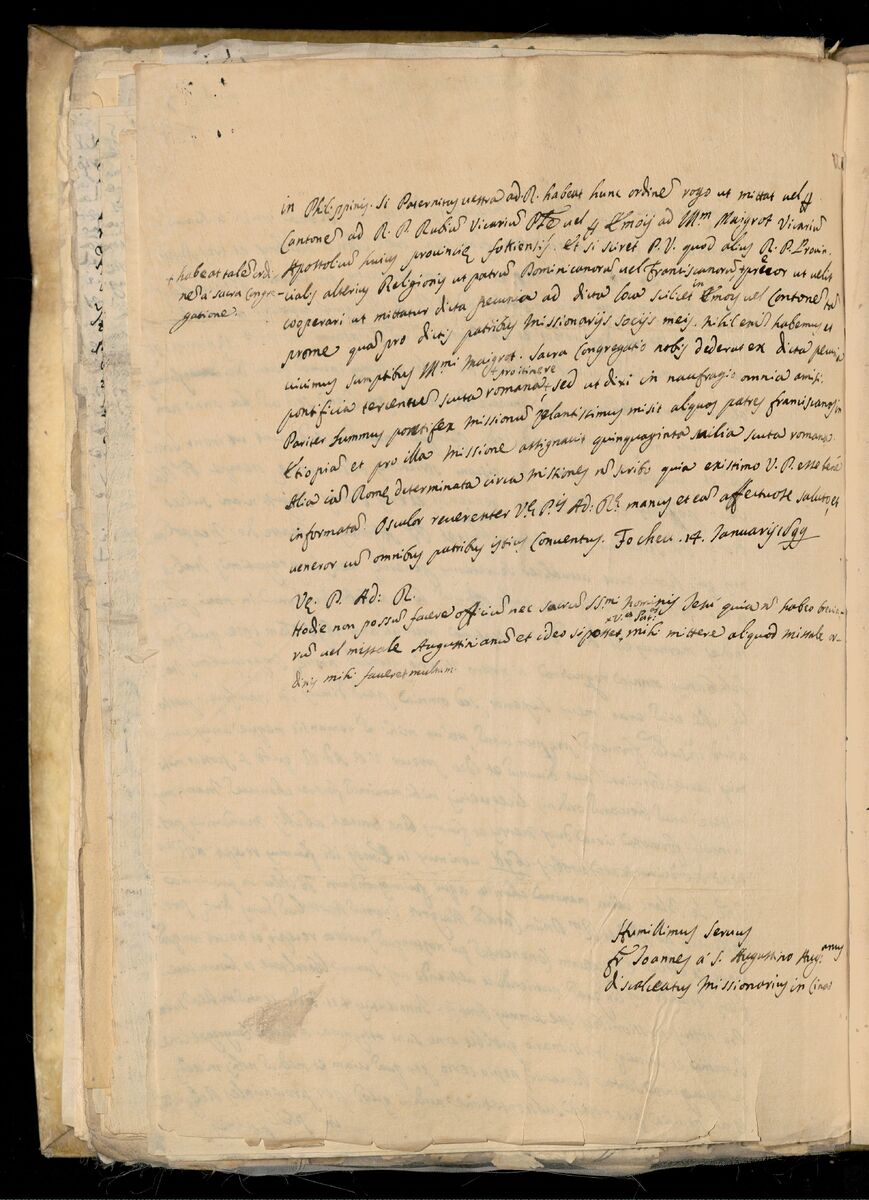 in Philippinis. Si Paternitas vestra ad. R. habeat hunc ordinē rogo ut mittat vel
Cantonē ad R. P. Rubiū Vicariū vel Emoij ad Ill.m Maigrot Vicariū
Apostolicū huius provincię fokiensis. Et si sciret P. V. quod alius R. P. Provin.
+ habeat talē ordi-
nē a' sacra Congre-
gatione.
cialis alterius Religionis ut patrū Dominicanorū vel franciscanorū + precor ut velit
cooperari ut mittatur dicta pecunia ad dicta loca scilicet in Emoij vel Cantonē tā
pro me quā pro dictis patribus Missionarijs socijs meis. Nihil enī habemus et
vivimus sumptibus Ill.mi Maigrot. Sacra Congregatio nobis dederat ex dicta pecunia
+ pro itinere
pontificia tercentū scuta romana + sed ut dixi in naufragio omnia amisi.
Pariter summus pontifex missionū zelantissimus misit aliquos patres franciscanos in
Etiopiā et pro illa Missione assignavit quinquaginta milia scuta romana.
Alia iā Romę determinata circa missiones nō scribo quia existimo V. P. esse benē
informatā. Osculor reverenter Vę P.is Ad: Rę manus et eā affectuose saluto, et
veneror cū omnibus patribus istius Conventus. Focheu .14. Januarij 1699
Vę. P. Ad: R.
Hodie non possū facere officiū nec sacrū SS.mi Nominis Jesu quia nō habeo brevia-
+ V.a Pat.s
riū vel missale Augustinianū et ideo si posset + mihi mittere aliquod missale or-
dinis mihi faveret multum.
Humillimus Servus
fr Joannes a' S. Augustino Aug.anus
discalceatus Missionarius in Cina